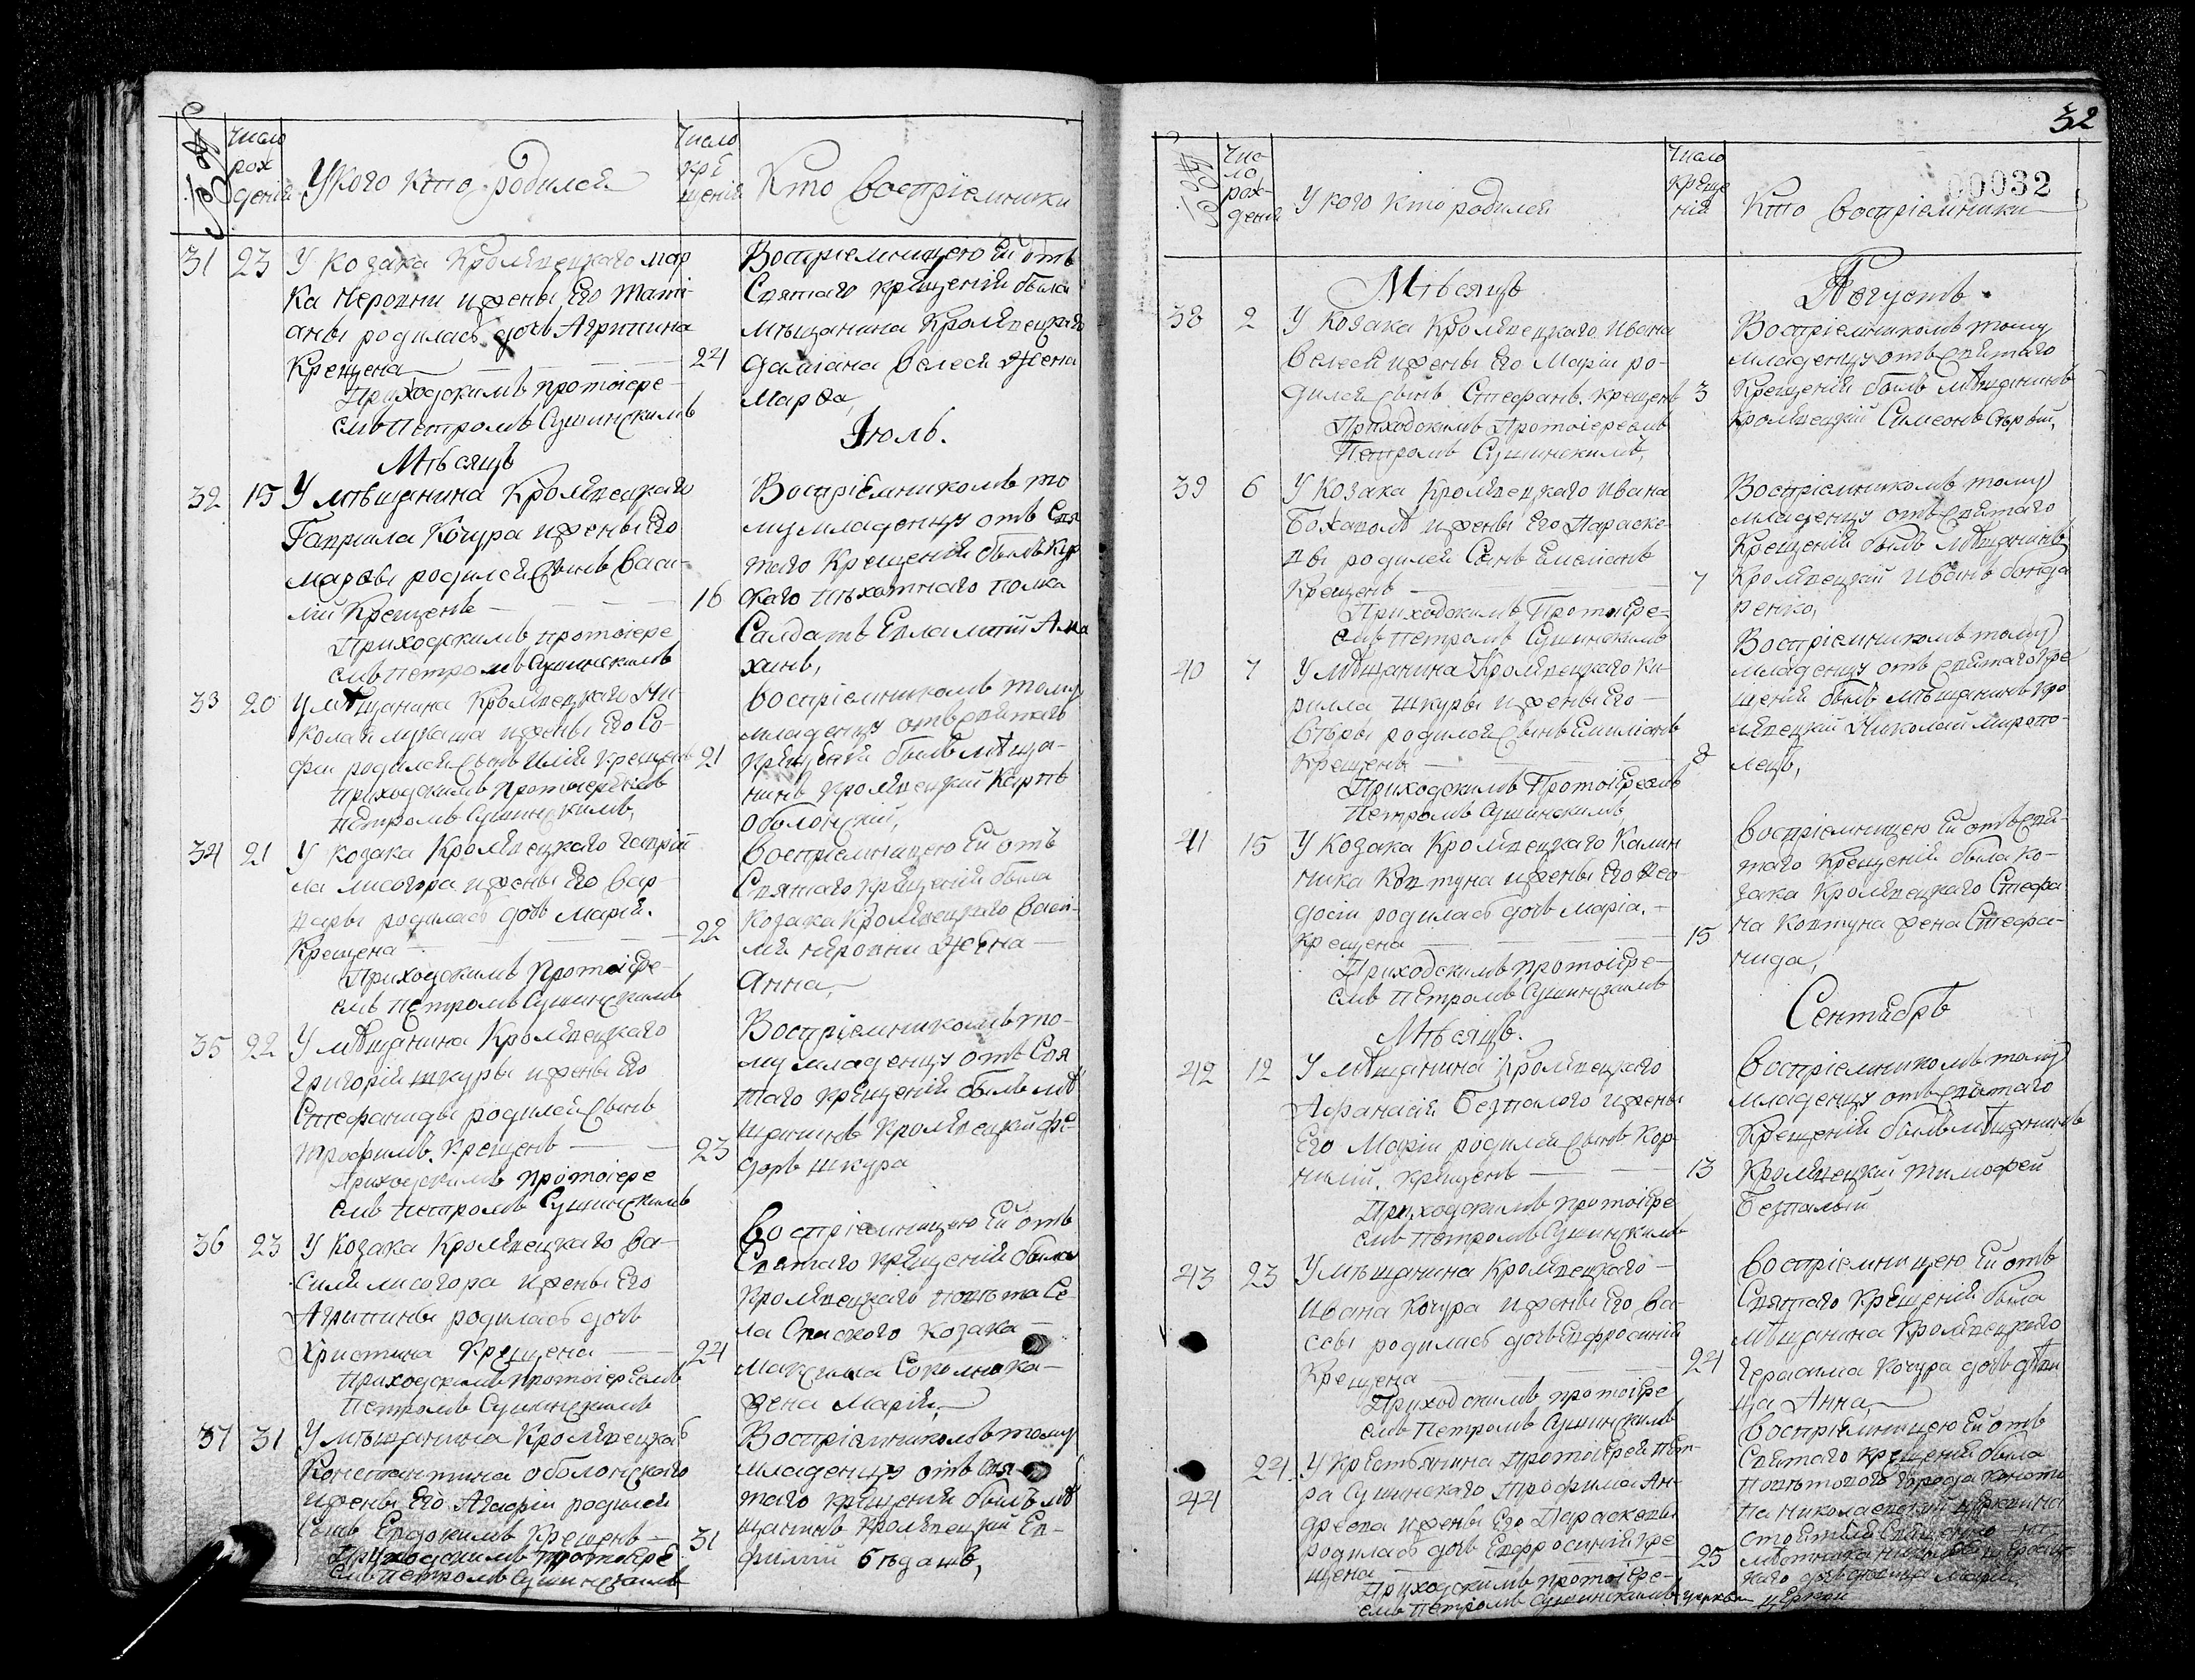 Число
рож
денія
У кого кто родился
Число
кре
щенія
Кто воспріемники
31 23 У Козака Кролевецкаго мар
ка Неровни и жены Его Тати-
аны родилась дочь Агрипина
Крещена 24
Приходскимъ протоіере-
емъ Петромъ Сушинскимъ
Воспріемницею Ей отъ
Святаго крещенія была
мѣщанина Кролевецкаго
Даміана Велеся Жена
Марѳа,
Мѣсяцъ Іюль.
32 15 У мѣщанина Кролевецкаго
Гавриила Кочура и жены Его
Марѳы родился сынъ Васи-
лій Крещенъ 16
Приходскимъ протоіере
емъ Петромъ Сушинскимъ
Воспріемникомъ то
му младенцу отъ Свя
таго Крещенія былъ Кур
скаго пѣхотнаго полка
Салдатъ Евлампій
33 20 У мѣщанина Кролевецкаго Ни-
колая лукаша и жены Его Со-
фіи родился сынъ Илія Крещенъ 21
Приходскимъ протоіереемъ
Петромъ Сушинскимъ,
Воспріемникомъ тому
младенцу отъ святаго
крещенія былъ мѣща-
нинъ Кролевецкій Карпъ
Оболонскій,
34 21 У козака Кролевецкаго Гаврії
ла лисогора и жены Его Вар-
вары родилась дочь Марія.
Крещена 22
Приходскимъ Протоіере-
емъ Петромъ Сушинскимъ
Воспріемницею Ей отъ
Святаго крещенія была
Козака Кролевецкаго Васи-
лія Неровни Жена
Анна,
35 22 У мѣщанина Кролевецкаго
Григорія шкуры и жены Его
Стефаниды родился сынъ
Трофимъ. Крещенъ 23
Приходскимъ протоіере
емъ Петромъ Сушинскимъ
Воспріемникомъ то-
му младенцу отъ Свя
таго крещенія былъ мѣ
щанинъ Кролевецкій Фе-
доръ шкура
36 23 У Козака Кролевецкаго Ва-
силя лисогора и жены Его
Агрипины родилась дочь
Христина Крещена 24
Приходскимъ протоіереемъ
Петромъ Сушинскимъ
Воспріемницею Ей отъ
Святаго крещенія была
Кролевецкаго повѣта Се-
ла Спаского Козака
Максима
жена Марія,
37 31 У мѣщанина Кролевецкаго
Константина оболонскаго
и жены Его Агафіи родился
Сынъ Евдокимъ Крещенъ 31
Приходскимъ протоіере
емъ Петромъ Сушинскимъ
Воспріемникомъ тому
младенцу отъ Свя
таго крещенія былъ мѣ
щанинъ Кролевецкій Ев-
фимій бѣдашъ,
32
00032
Чис-
ло
рож-
денія
У кого кто родился
Число
креще
нія
Кто воспріемники
Мѣсяцъ Августъ.
38 2 У Козака Кролевецкаго Ивана
Велеся и жены Его Маріи ро-
дился сынъ Стефанъ. Крещенъ 3
Приходскимъ Протоіереемъ
Петромъ Сушинскимъ,
Воспріемникомъ тому
младенцу отъ святаго
Крещенія былъ мѣщанинъ
Кролевецкій Симеонъ
39 6 У Козака Кролевецкаго Ивана
и жены Его Параске
вы родился Сынъ Емеліанъ
Крещенъ 7
Приходскимъ Протоіере-
емъ Петромъ Сушинскимъ
Воспріемникомъ тому
младенцу отъ святаго
Крещенія былъ мѣщанинъ
Кролевецкій Иванъ бонда
ренко,
40 7 У мѣщанина Кролевецкаго Ки-
рилла шкуры и жены Его
родился сынъ Емиліанъ
Крещенъ 8
Приходскимъ Протоіереемъ
Петромъ Сушинскимъ,
Воспріемникомъ тому
младенцу отъ святаго Кре
щенія былъ мѣщанинъ Кро
левецкій Николай миропо-
лецъ,
41 15 У Козака Кролевецкаго Калин
ника Ковтуна и жены Его Ѳео
досіи родилась дочь Марія.
Крещена 15
Приходскимъ протоіере-
емъ Петромъ Сушинскимъ
Воспріемницею Ей отъ Свя-
таго Крещенія была Ко-
зака Кролевецкаго Стефа
на Ковтуна жена Стефа-
нида,
Мѣсяцъ. Сентябрь
42 12 У мѣщанина Кролевецкаго
Афанасія Безпалого и жены
Его Маріи родился сынъ Кор-
нилій. Крещенъ 13
Приходскимъ протоіере
емъ Петромъ Сушинскимъ
Воспріемникомъ тому
младенцу отъ святаго
Крещенія былъ мѣщанинъ
Кролевецкій Тимофей
Безпалый
43 23 У мѣщанина Кролевецкаго
Ивана Кочура и жены Его Ва-
ссы родилась дочь Евфросинія
Крещена 24
Приходскимъ протоіере
емъ Петромъ Сушинскимъ
Воспріемницею Ей отъ
Святаго Крещенія была
мѣщанина Кролевецкаго
Герасима Кочура дочь дѣви
ца Анна,
44 24 У Крестьянина Протоіерея Пет-
ра Сушинскаго Трофима Ан-
дреева и жены Его Параскевы
родилась дочь Евфросинія Кре
щена 25
Приходскимъ протоіере-
емъ Петромъ Сушинскимъ
Воспріемницею Ей отъ
Святаго крещенія была
повѣтового города Коното
па Николаевской церкви